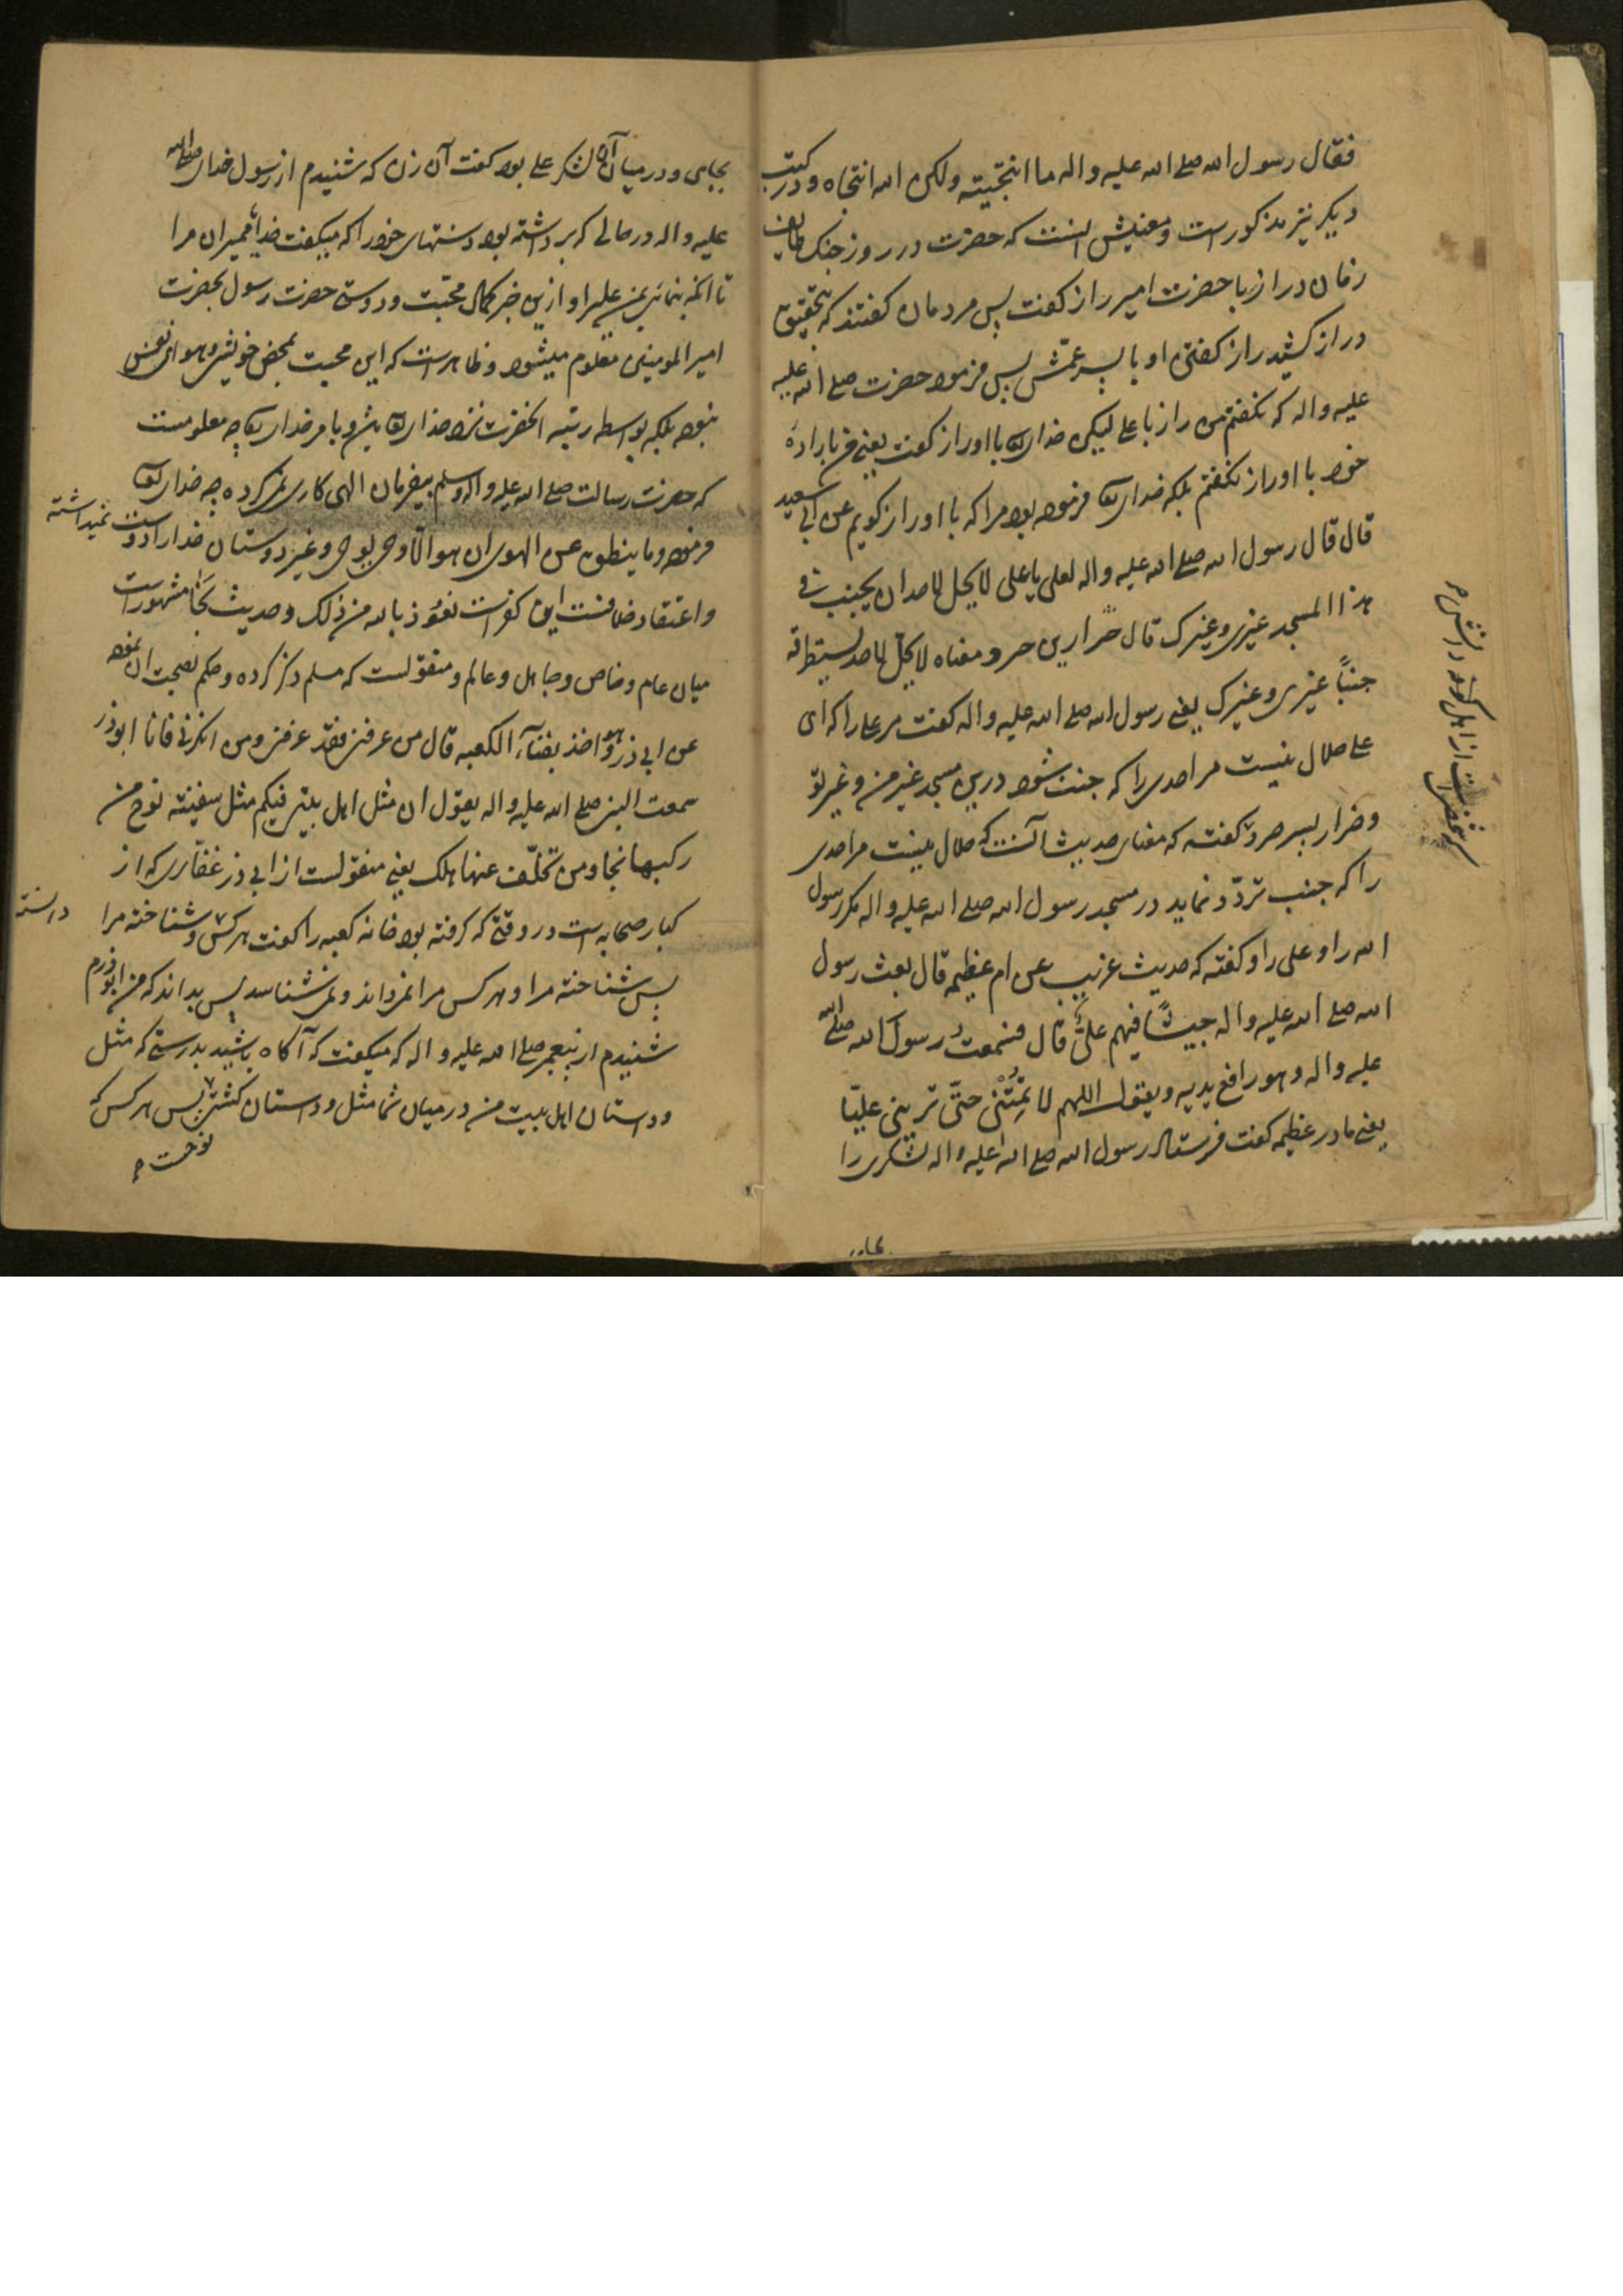 فقال رسول الله صلی الله علیه واله ما انتجیته ولکن الله انتجاه و در کتب
دیکر نیز مذکور است و معنیش اینست که حضرت در روز جنک طایف
زمان دراز با حضرت امیر راز کفت پس مردمان کفتند که بتحقیق
دراز کشید راز کفتن او با پسر عمّش پس فرمود حضرت صلی الله علیه
علیه واله که نکفتم من راز با علی لیکن خدایتعا با او راز کفت یعنی من بارادهٔ
خود با او راز نکفتم بلکه خدایتعا فرموده بود مرا که با او راز کویم عن ابی سعید
قال قال رسول الله صلی الله علیه واله لعلی یا علی لا یحل لاحد ان یجنب فی
هذا المسجد غیری و غیرک قال ضرار بن صرد معناه لا یحل لاحد یستطرقه
جنباً غیری و غیرک یعنی رسول الله صلی الله علیه واله کفت مر علی را که ای
علی حلال نیست مر احدی را که جنب شود درین مسجد غیر من و غیر تو
و ضرار پسر صرد کفته که معنای حدیث آنست که حلال نیست مر احدی
را که جنب تردّد نماید در مسجد رسول الله صلی الله علیه واله مکر رسول
الله را و علی را و کفته که حدیث غریب عن ام عطیه قال بعث رسول
الله صلی الله علیه واله جیشًا فیهم علیٌّ قال فسمعتُ رسول الله صلی الله
علیه واله و هو رافع یدیه و یقول اللهم لا تُمِتْنی حتّی ترینی علیّا
یعنی مادر عطیه کفت فرستاد رسول الله صلی الله علیه واله لشکری را
از اهل
بجایی و در میان آن لشکر علی بود کفت آن زن که شنیدم از رسول خدای صلی الله
علیه واله در حالی که برداشته بود دستهای خود را که میکفت خدایا ممیران مرا
تا آنکه بنمائی بمن علی را و ازین خبر کمال محبّت و دوستی حضرت رسول بحضرت
امیر المومنین معلوم میشود و ظاهر است که این محبت بمحض خویشی و هوای نفس
نبوده بلکه بواسطه رتبه آنحضرت نزد خدایتعا بیش و بامر خدایتعا چه معلومست
که حضرت رسالت صلی الله علیه واله وسلم بیفرمان الهی کاری نمیکرده چه خدایتعا
فرموده وما ینطق عن الهوی ان هو الّا وحی یوحی و غیر دوستان خدا را دوست نمیداشته
و اعتقاد خلاف این کفر است نعوذ بالله من ذلک و حدیث مشهور است
میان عام و خاص و جاهل و عالم و منقولست که مسلم ذکر کرده و حکم بصحت آن نموده
عن ابی ذر و هو اخذ بفنآء الکعبه قال من عرفنی فقد عرفنی و من انکرنی فانا ابوذر
سمعت النبی صلی الله علیه واله یقول ان مثل اهل بیتی فیکم مثل سفینة نوح من
رکبها نجا و من تخلّف عنها هلک یعنی منقولست از ابی ذر غفّاری که از
کبار صحابه است در وقتی که کرفته بود خانه کعبه را کفت هر کس شناخته مرا
دانسته
پس شناخته مرا و هر کس مرا نمیداند و نمیشناسد پس بداند که من ابوذرم
شنیدم از پیغمبر صلی الله علیه واله که میکفت که آکاه باشید بدرستی که مثل
و داستان اهل بیت من در میان شما مثل و داستان کشتی پس هر کس که
نوحست